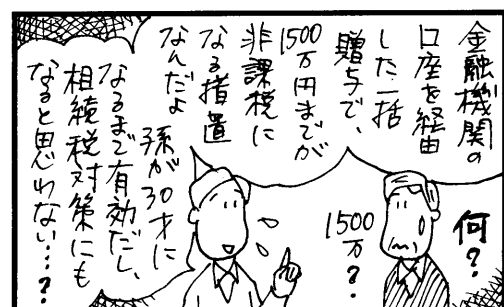 金融機関の
口座を経由
した一括
贈与で、
1500
万円までが
非課税に
なる措置
なんだよ
孫が30才に
なるまで有効だし、
相続税対策にも
なると思わない…?
何?
1500
万?